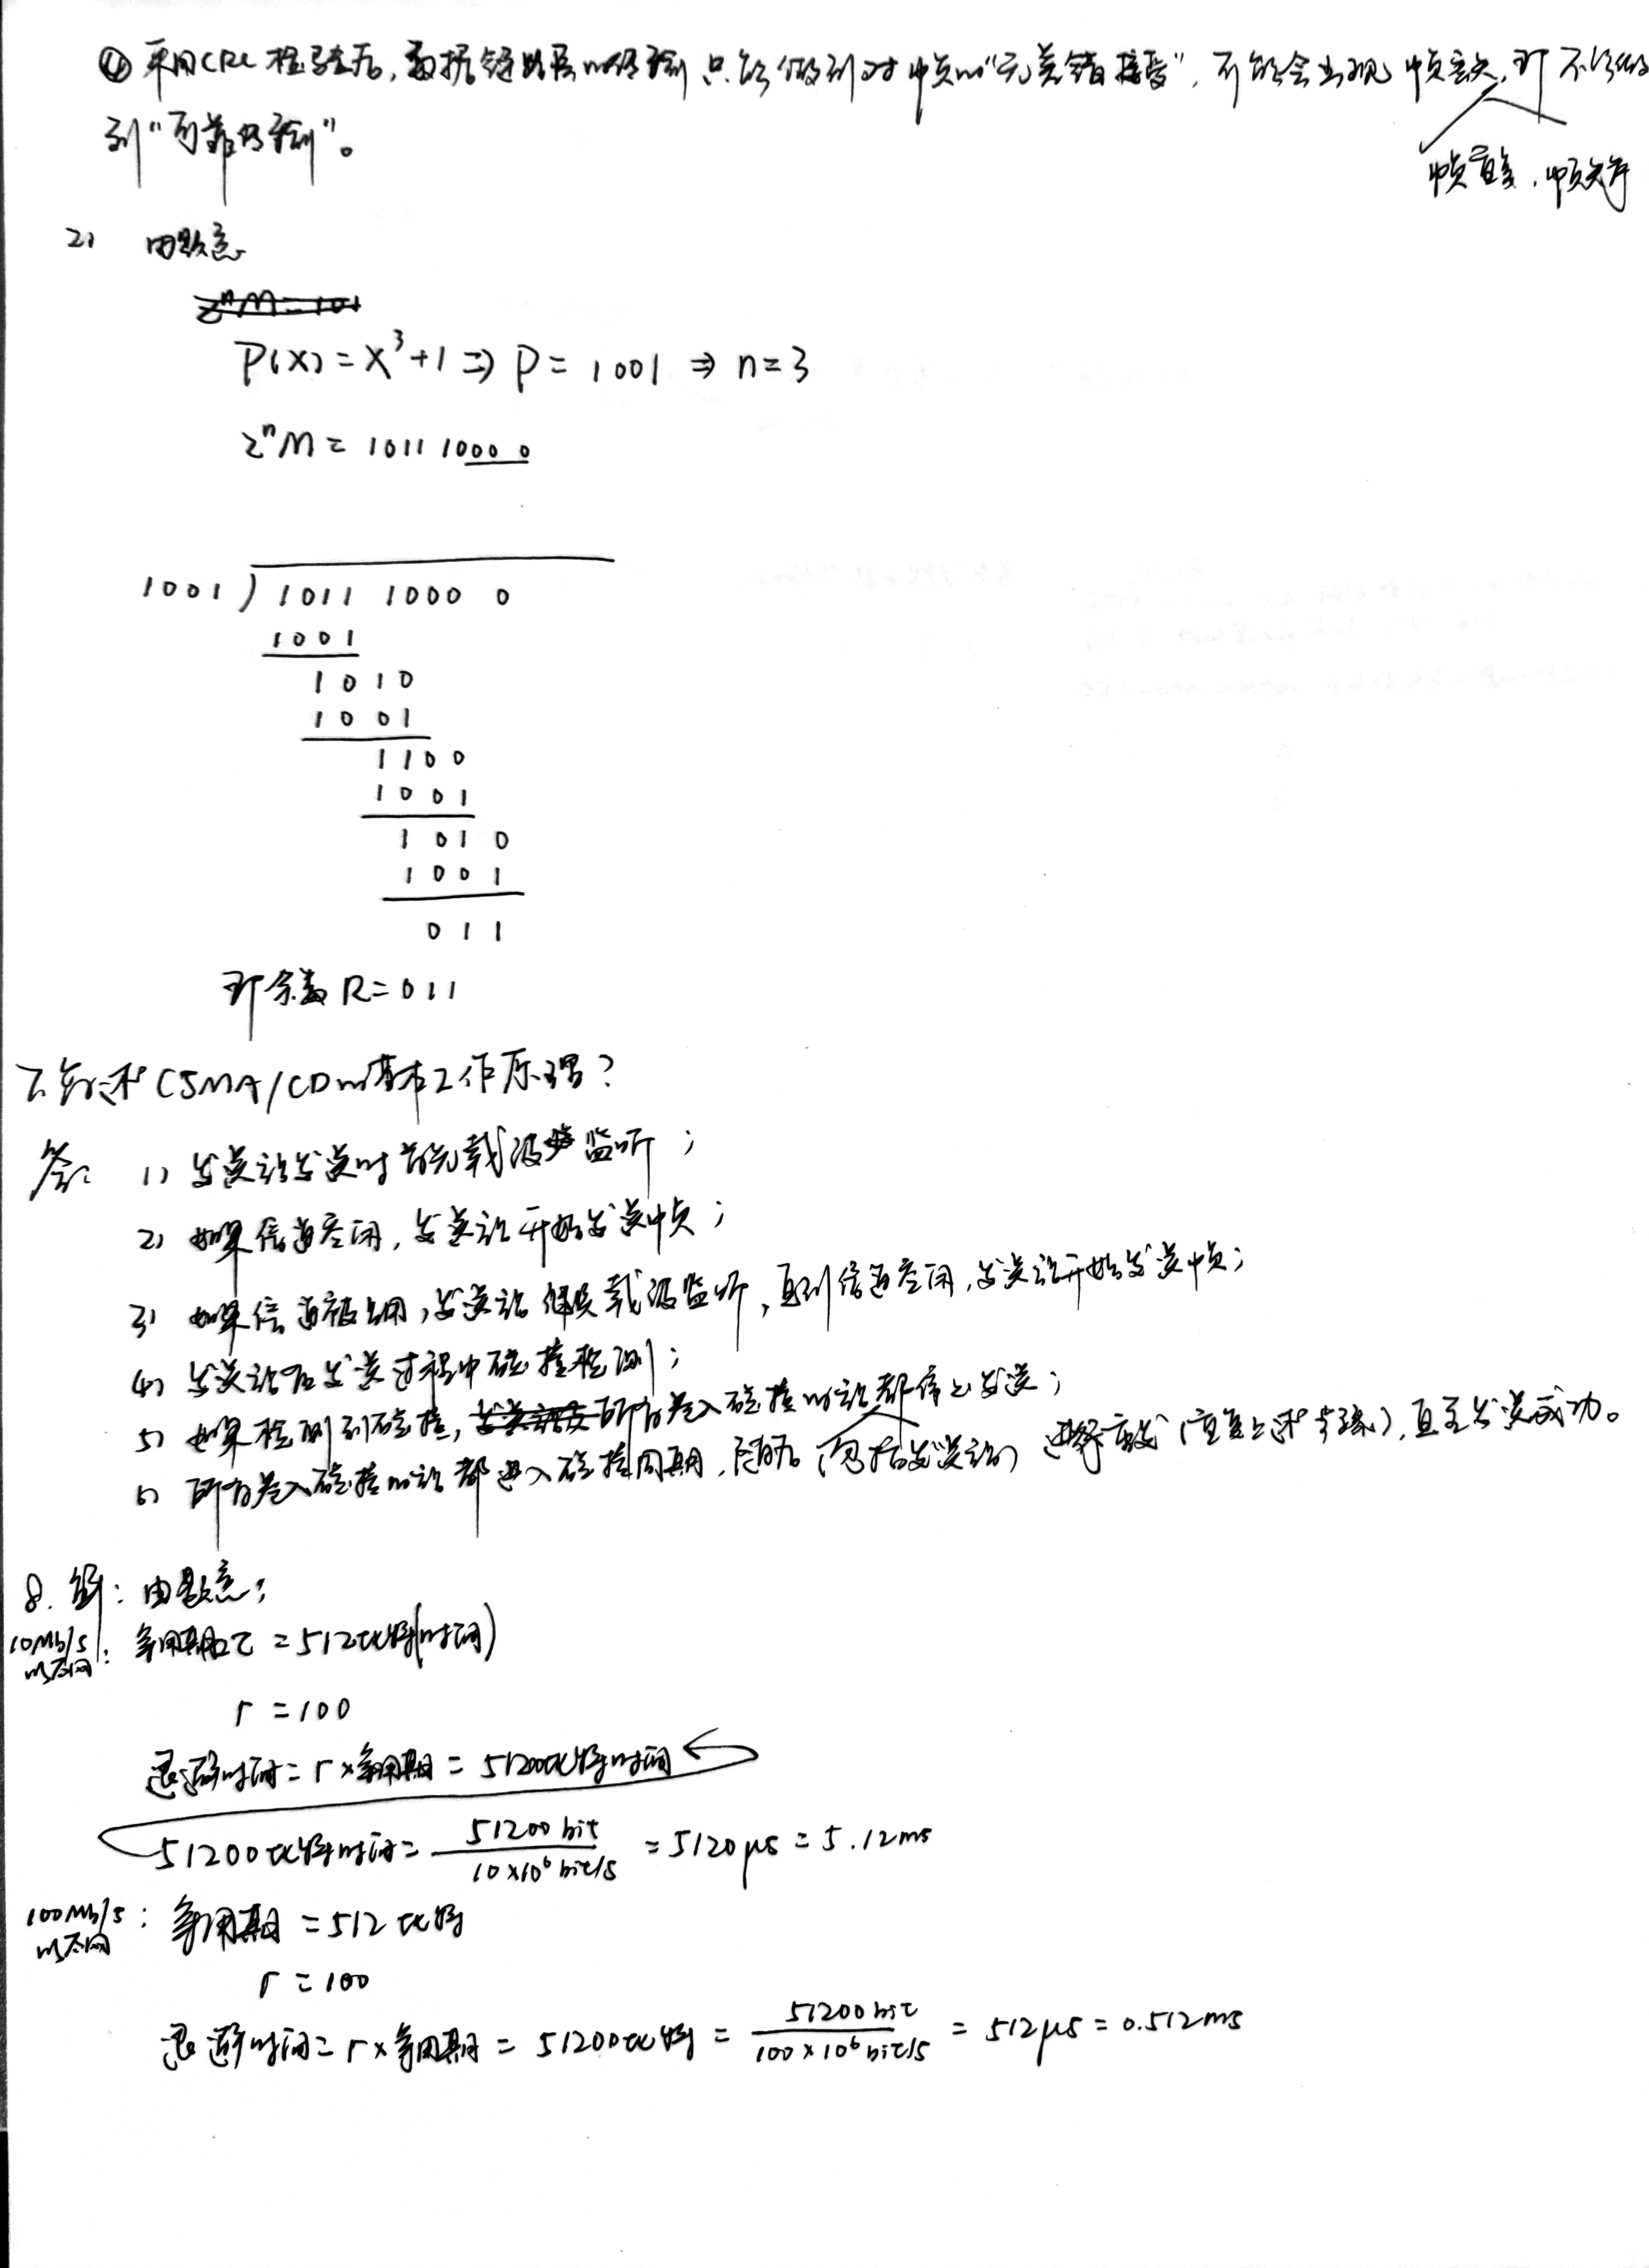 ④ 采用CRC检验后,数据链路层的传输只能做到对帧的“无差错接受”,可能会出现帧丢失,即不能做
到“可靠传输”。
帧重复,帧失序
2) 由题意
P(X)=X³+1 ⇒ P= 1001 ⇒ n=3
2ⁿM = 1011 1000 0
1001 ) 1011 1000 0
1001
1010
1001
1100
1001
1010
1001
011
即余数 R=011
7. 叙述CSMA/CD的基本工作原理?
答: 1) 发送站发送时首先载波监听;
2) 如果信道空闲,发送站开始发送帧;
3) 如果信道被占用,发送站继续载波监听,直到信道空闲,发送站开始发送帧;
4) 发送站在发送过程中碰撞检测;
5) 如果检测到碰撞,所有卷入碰撞的站都停止发送;
6) 所有卷入碰撞的站都进入碰撞周期,随后(包括发送站)选择重发(重复上述步骤),直至发送成功。
8. 解: 由题意:
10Mb/s以太网: 争用期2τ = 512比特(时间)
r = 100
退避时间 = r × 争用期 = 51200比特时间
51200比特时间 = 51200 bit / 10×10⁶ bit/s = 5120 μs = 5.12ms
100Mb/s以太网: 争用期 = 512 比特
r = 100
退避时间 = r × 争用期 = 51200比特 = 51200 bit / 100×10⁶ bit/s = 512μs = 0.512ms